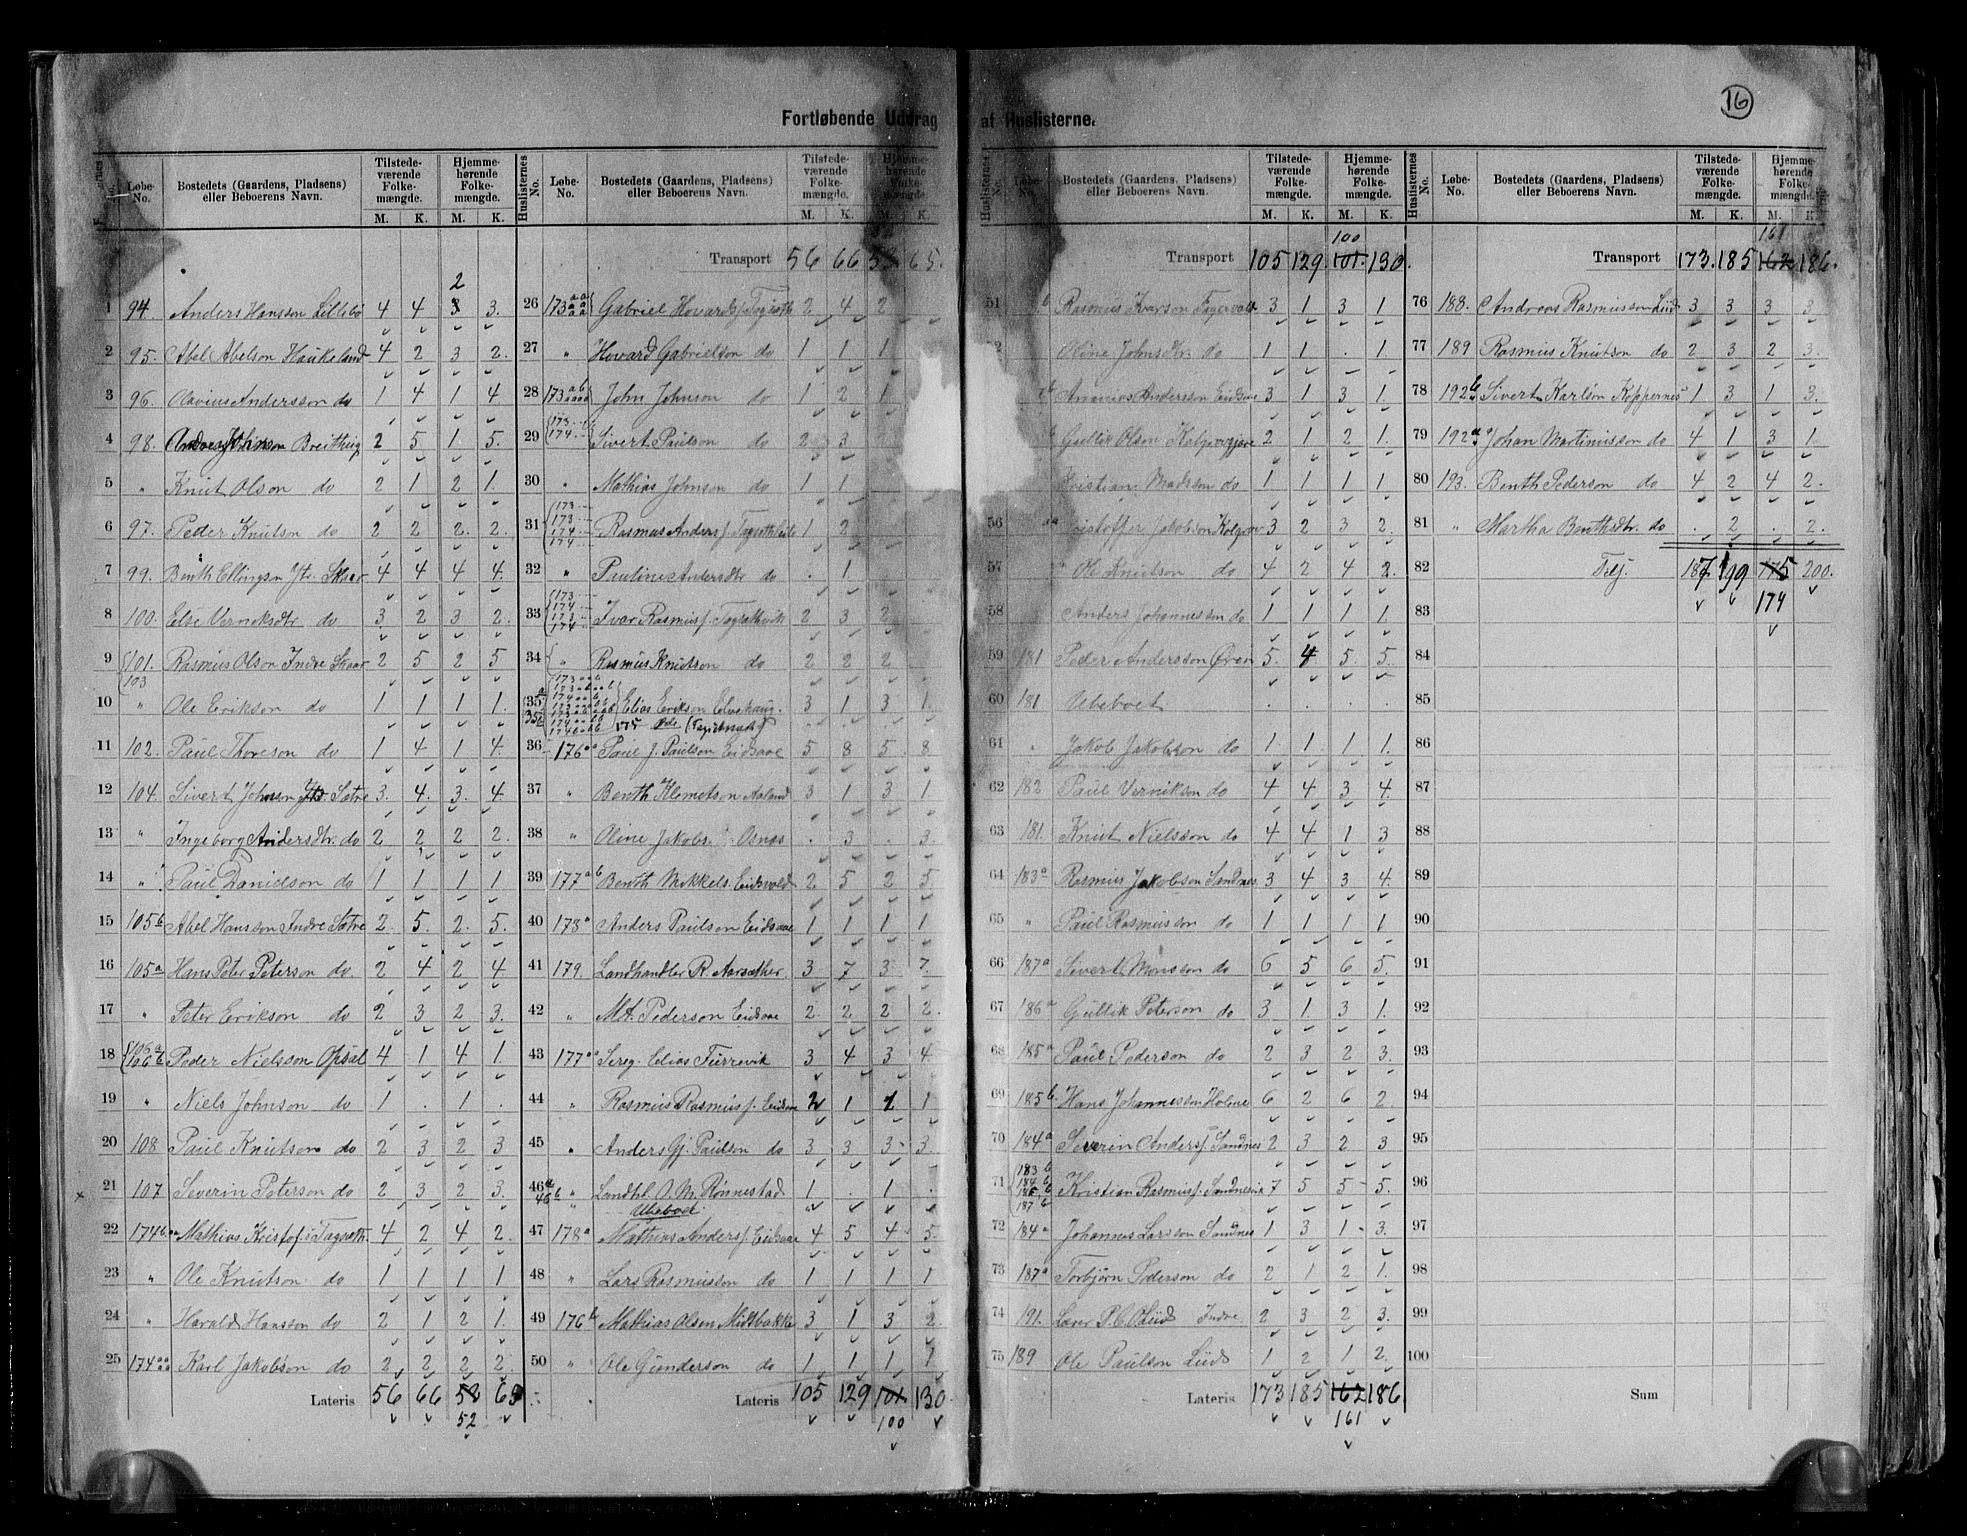 16
Fortløbende Uddrag af Huslisterne.
Løbe-No. Bostedets (Gaardens, Pladsens) eller Beboerens Navn. Tilstedeværende Folkemængde. M. K. Hjemmehørende Folkemængde. M. K.
2
1 94. Anders Hansson Lillebø 4 4 3 3.
2 95. Abel Abelson Haukeland 4 2 3 2.
3 96. Olavius Andersson do 1 4 1 4
4 98. Johnson Breithug 2 5 1 5.
5 " Knut Olson do 2 1 2 1.
6 97. Petter Knutson do 2 2 2. 2.
7 99. Benth Ellingsn Ytr. Skaar 4 4 4 4.
8 100. Else Verniksdtr. do 3 2 3 2.
9 101. 103 Rasmus Olson Indre Skaar 2 5 2 5
10 " Ole Erikson do 1 1 1 1.
11 102. Paul Thoreson do 1 4 1 4.
12 104. Sivert Johnson Ytr Sætre 3. 4. 3. 4
13 " Ingeborg Andersdtr. do 2 2 2 2.
14 " Paul Danielson do 1 1 1 1
15 105b Abel Hansson Indre Sætre 2. 5. 2. 5.
16 105a Hans Peter Peterson do. 2 4 2 4
17 " Peter Erikson do 2 3 2 3.
18 106a 106b Peder Nielsson Opsal 4 1 4 1.
19 " Niels Johnson do 1 . 1 .
20 108 Paul Knutson do 2 3 2 3
21 107 Severin Peterson do 2 3 2 3.
22 174b. Mathias Kristof. Tagseth. 4 2 4 2.
23 " Ole Knutson do 1 1 1 1
24 " Harald Hansson do 2 1 2 1.
25 174 Karl Jakobson do 2 2 2 2.
Lateris 56 66 53 65
52
Huslisternes No. Løbe-No. Bostedets (Gaardens, Pladsens) eller Beboerens Navn. Tilstedeværende Folkemængde. M. K. Hjemmehørende Folkemængde. M. K.
Transport 56 66 53 65.
26 173 Gabriel Hovards. 2 4 2
27 " Hovard Gabrielson do 1 1 1
28 173 John Johnson do 1 2 1
29 173 174 Sivert Paulson do 2 3
30 " Mathias Johnson do 1 1
31 173 173 174 174 Rasmus Anders. 1 2
32 " Pauline Andersdtr do . 1
33 173 174 173 174 Ivar Rasmus. 2 3 2
34 " Rasmus Knutson do 2 2 2
35 Elias Erikson Elvehaug. 3 1 3 1.
36 176 Paul J. Paulson Eidsaae 5 8 5 8
37 " Benth Klemetson Aaland 3 1 3 1
38 " Oline Jakobs. Osnes . 3 . 3.
39 177 Benth Mikkels. Eidsvold 2 5 2 5
40 178a Anders Paulson Eidsaae 1 1 1 1
41 179. Landhandler R. Aarsæther. 3 7 3 7.
42 " Mt. Pederson Eidsaae 2 2 2 2.
43 177 Serg. Elias Furrevik 3 4 3 4.
44 " Rasmus Rasmus. Eidsaae 2 1 1
45 " Anders Gj. Paulson do 3 3 3 3.
46a 46b " Landhl. O. M. Rønnestad 1 . 1 .
" Ubeboet.
47 178a Mathias Anders. Eidsaae 4 5 4 5.
48 " Lars Rasmusson do 1 1 1 1
49 176b Mathias Olsen Midtbakke 3 1 3 2
50 " Ole Gunderson do 1 1 1 1
Lateris 105 129 101 130.
100
Huslisternes No. Løbe-No. Bostedets (Gaardens, Pladsens) eller Beboerens Navn. Tilstedeværende Folkemængde. M. K. Hjemmehørende Folkemængde. M. K.
100
Transport 105 129. 101. 130.
51 Rasmus Ivarson Fagervold 3 1 3 1
Oline Johnsdtr. do 1 1 . 1
Ananias Andersson Eidsaae 3 1 3 1.
Gullik Olson 2 1 2 1.
Kristian Madsson do 1 1 1 1
56 Kristoffer Jakobson 3 2 3 2.
57 " Ole Knutson do 4 2 4 2.
58 Anders Johannesson do 1 1 1 1.
59 181 Peder Andersson Øren 5. 4 5. 5.
60 181 Ubeboet . . . .
61 " Jakob Jakobson do 1 1 1 1.
62 182 Paul Vernikson do 4 4 3 4.
63 181. Knut Nielsson do 4 4 1 3
64 183a Rasmus Jakobson Sandnes. 3 4 3 4.
65 " Paul Rasmusson do 1 1 1 1
66 187a Sivert Monsson do 6 5 6 5.
67 186a Gullik Peterson do 3 1 3 1.
68 185a Paul Pederson do 2 3 2 3.
69 185b. Hans Johannesson Holene 6 2 6 2
70 184a Severin Anders. Sandnes 2 3 2 3
71 183b 184b 185b 187b Kristian Rasmus. Sandnesvik 7 5 5 5.
72 184a Johannes Larsson Sandnes 1 3 1 3.
73 187a Torbjørn Pederson do 2 1 2 1.
74 191. Indre 2 3 2 3.
75 189 Ole Paulson Liid 1 2 1 2.
Lateris 173 185 162 186.
161
Huslisternes No. Løbe-No. Bostedets (Gaardens, Pladsens) eller Beboerens Navn. Tilstedeværende Folkemængde. M. K. Hjemmehørende Folkemængde. M. K.
161
Transport 173. 185 162 186.
76 188. Andreas Rasmusson Liid 3 3 3 3.
77 189 Rasmus Knutson do 2 3 2 3.
78 192b Sivert Karlson Koppernes 1 3 1 3.
79 192a Johan Martinusson do 4 1 3 1
80 193. Benth Pederson do 4 2 4 2.
81 " Martha Benthsdtr. do . 2 . 2.
82 Tilj. 187 199 175 200.
83 174
84
85
86
87
88
89
90
91
92
93
94
95
96
97
98
99
100
Sum